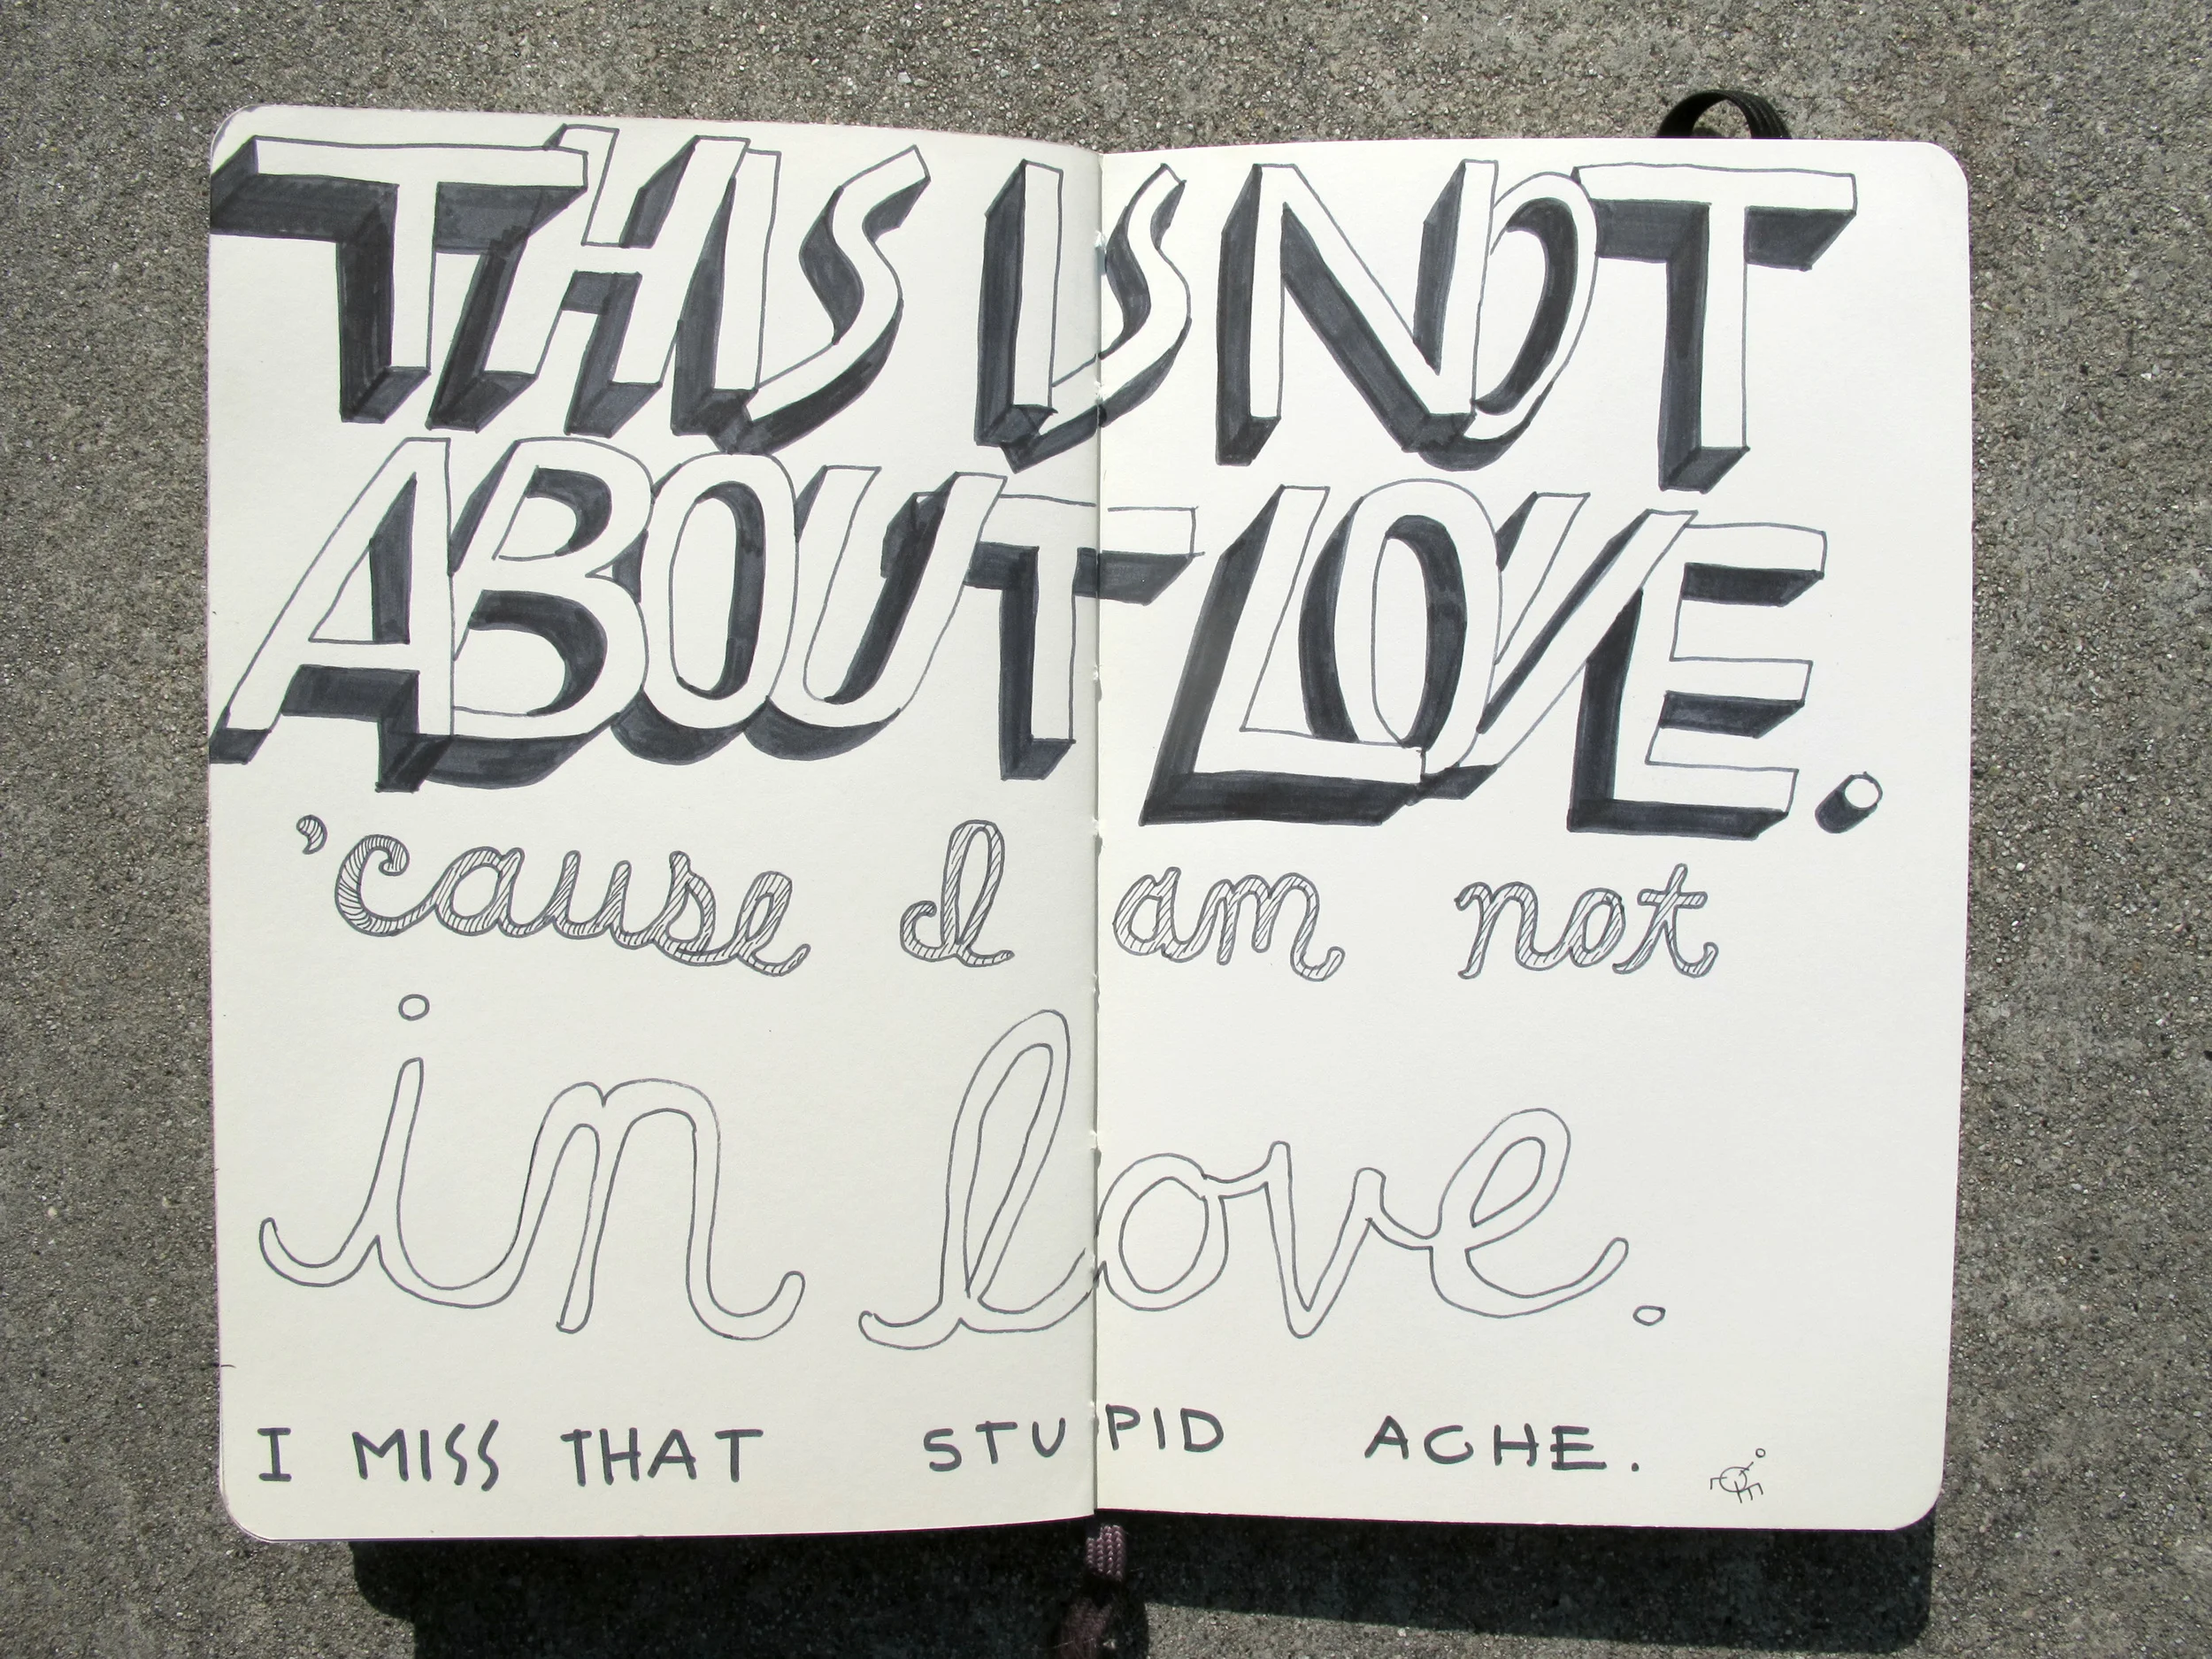 THIS IS NOT
ABOUT LOVE.
'cause I am not
in love.
I MISS THAT STUPID ACHE.